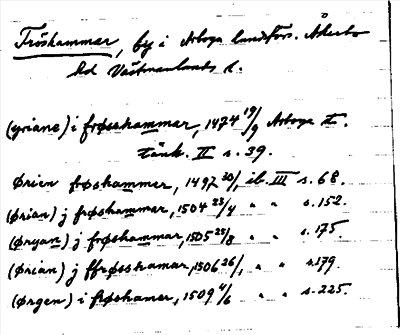 Fröshammar, by i Arboga landsförs. Åkerbo
hd Västmanlands l.
(yriane) i frøsshammar, 1474 19/9 Arboga t.
tänk. II s. 39.
Ørien frøshammar, 1497 30/1, ib. III s. 68.
(ørian) j frøshammar, 1504 23/4 " " s. 152.
(øryan) j frøshamar, 1505 25/8 " " s. 175.
(ørian) j ffrøsshamar, 1506 26/1, " " s. 179.
(ørgen) i frøshamer, 1509 4/6 " " s. 225.